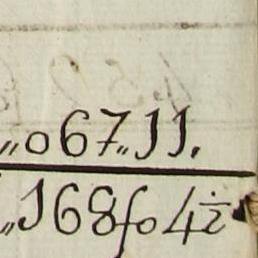 „067„11.
„168fo4½